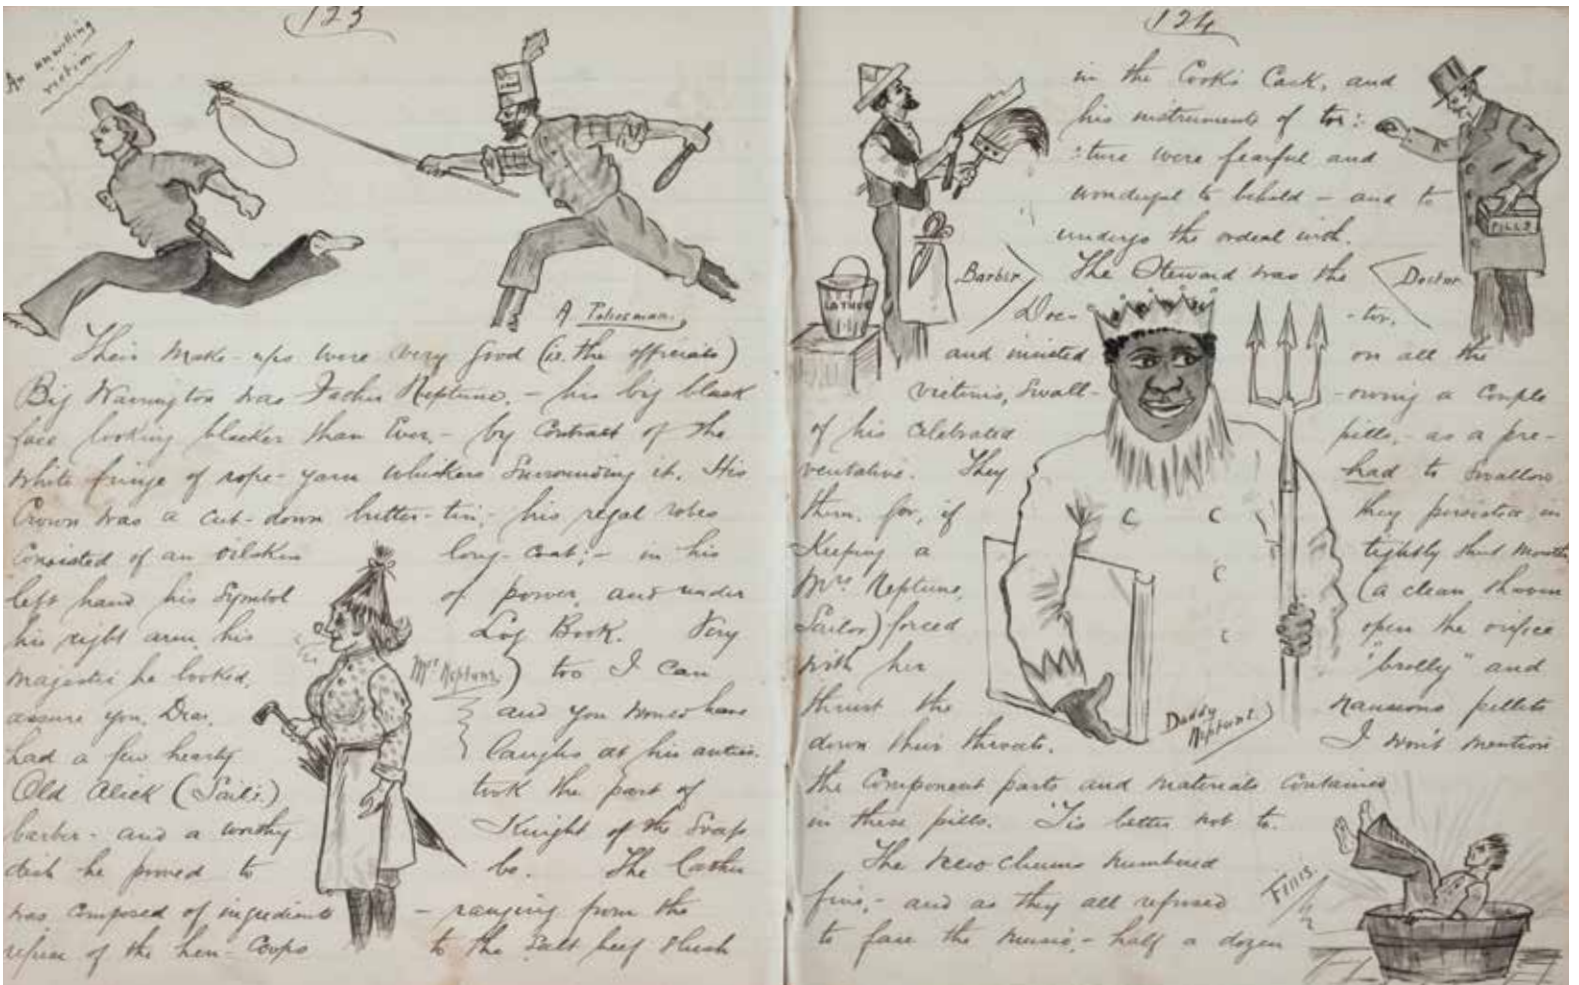 123
An unwilling
victim
A Policeman.
Their make-ups were very good (i.e. the officials)
Big Warrington was Father Neptune, - his big black
face looking blacker than ever, - by contrast of the
white fringe of rope-yarn whiskers surrounding it. His
Crown was a cut-down butter-tin, - his regal robes
consisted of an oilskin long-coat; - in his
left hand his symbol of power, and under
his right arm, his Log Book. Very
majestic he looked, too I can
assure you, Dear, and you would have
had a few hearty laughs at his antics.
Old Alick (Sails) took the part of
barber - and a worthy Knight of the Soap
dish he proved to be. The lather
was composed of ingredients - ranging from the
refuse of the hen-coops to the salt beef slush
Mrs Neptune
124
in the Cook's Cask, and
his instruments of tor:
:ture were fearful and
wonderful to behold - and to
undergo the ordeal with.
The Steward was the
Doc- -tor,
and insisted on all the
victims, swall- -owing a couple
of his celebrated pills, - as a pre-
ventative. They had to swallow
them, for, if they persisted in
keeping a tightly shut mouth
Mrs Neptune, (a clean shaven
Sailor) forced open the orifice
with her "brolly" and
thrust the nauseous pellets
down their throats. I won't mention
the component parts and materials contained
in these pills. 'Tis better not to.
The new chums numbered
five, - and as they all refused
to face the music, - half a dozen
Barber
LATHER
Doctor
PILLS
Daddy
Neptune.
FINIS.